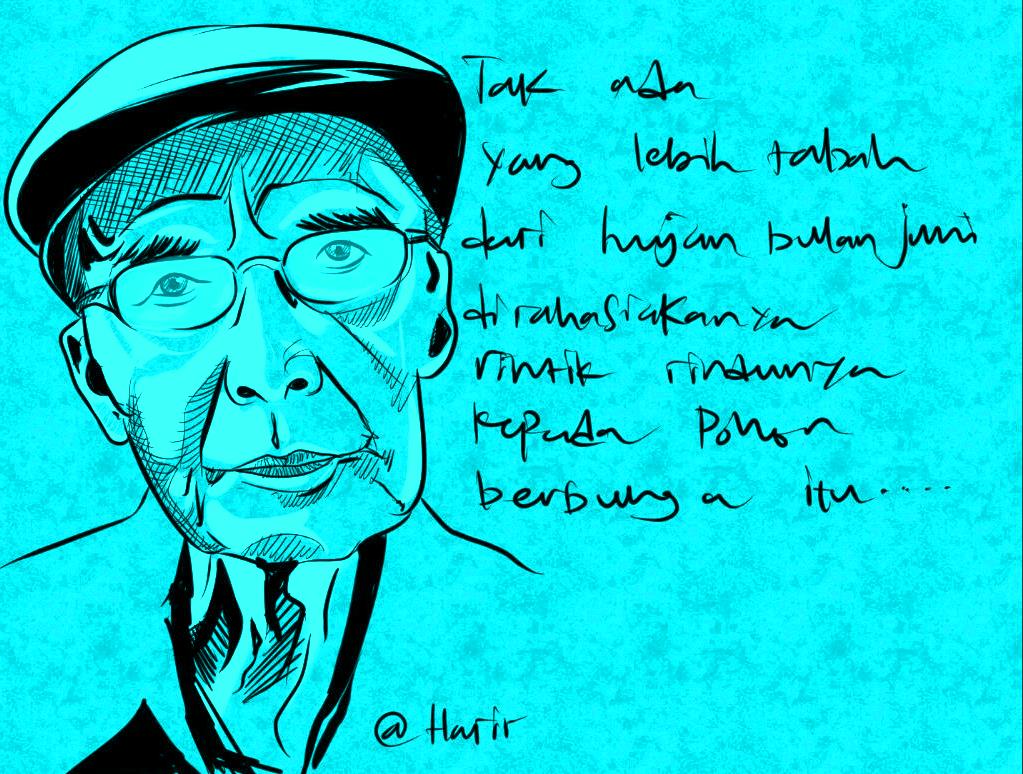 Tak ada
yang lebih tabah
dari hujan bulan juni
dirahasiakannya
rintik rindunya
kepada pohon
berbunga itu.....
@Harir